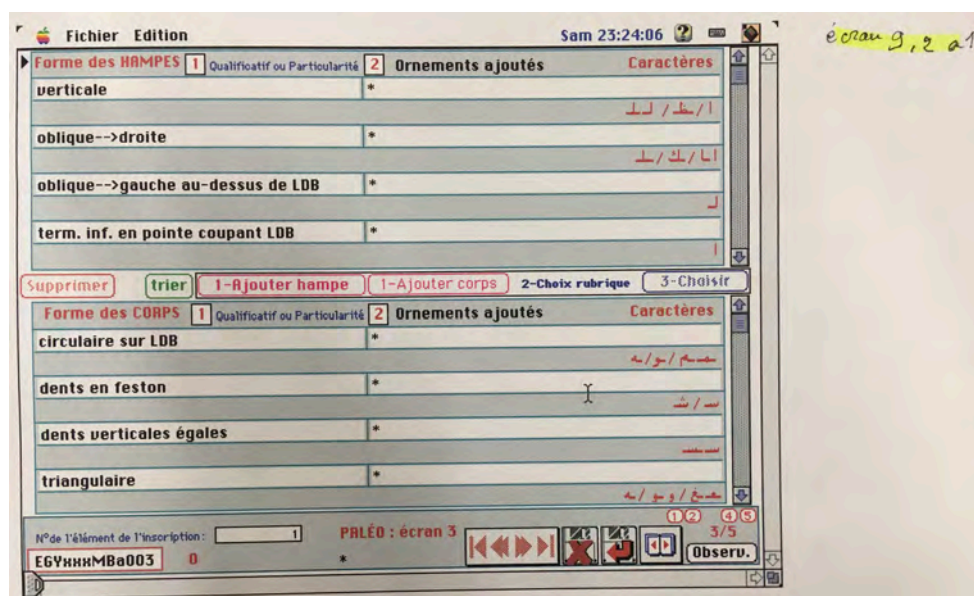 Fichier Edition Sam 23:24:06
écran 9, 2 a1
Forme des HAMPES 1 Qualificatif ou Particularité 2 Ornements ajoutés Caractères
verticale *
oblique-->droite *
oblique-->gauche au-dessus de LDB *
term. inf. en pointe coupant LDB *
Supprimer trier 1-Ajouter hampe 1-Ajouter corps 2-Choix rubrique 3-Choisir
Forme des CORPS 1 Qualificatif ou Particularité 2 Ornements ajoutés Caractères
circulaire sur LDB *
dents en feston *
dents verticales égales *
triangulaire *
1 2 4 5
N°de l'élément de l'inscription: 1 PALÉO : écran 3 3/5
EGYxxxMBa003 0 * Observ.